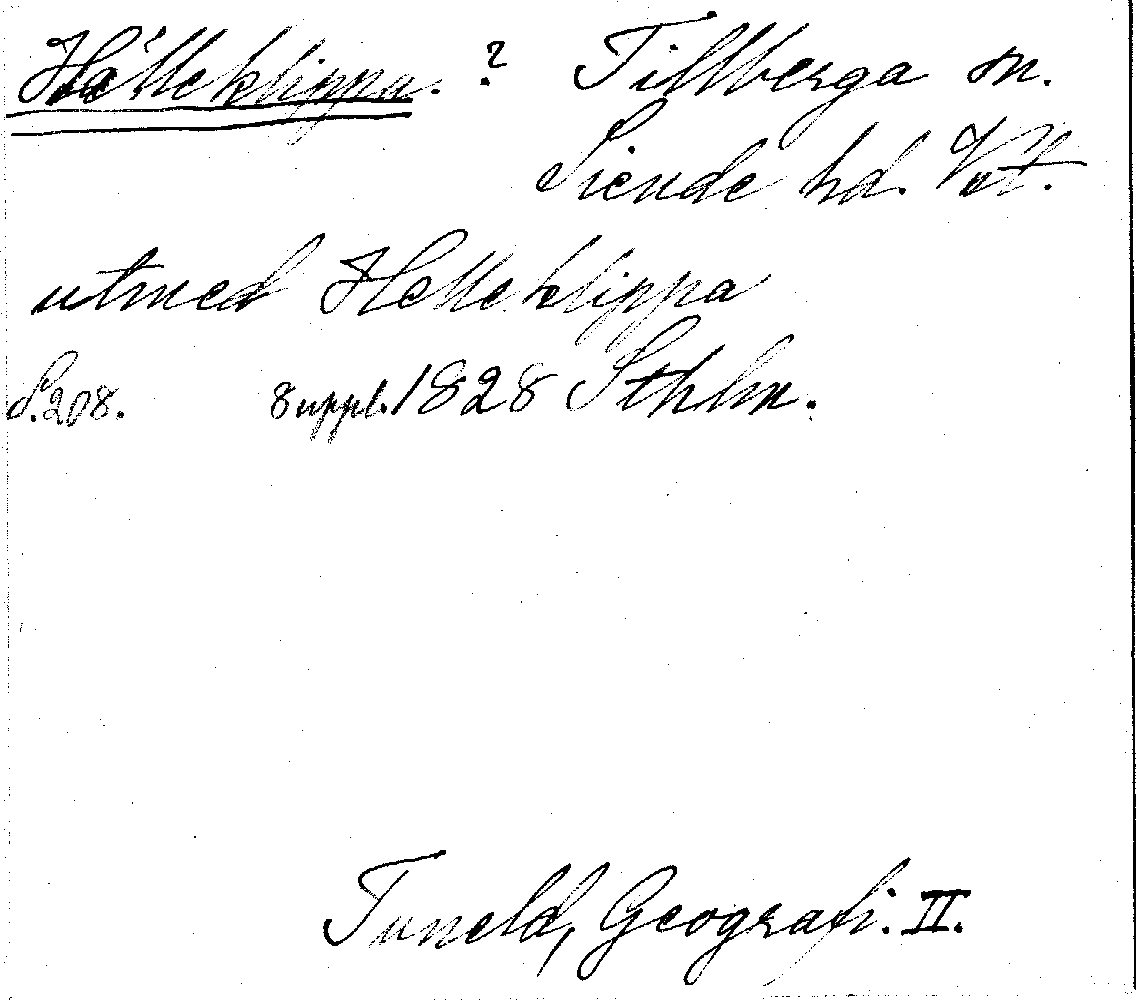 Hälleklippa. ? Tillberga sn.
Siende hd. Vstm.
utmed Helleklippa
S. 208. Suppl. 1828 Sthlm.
Tuneld, Geografi. II.